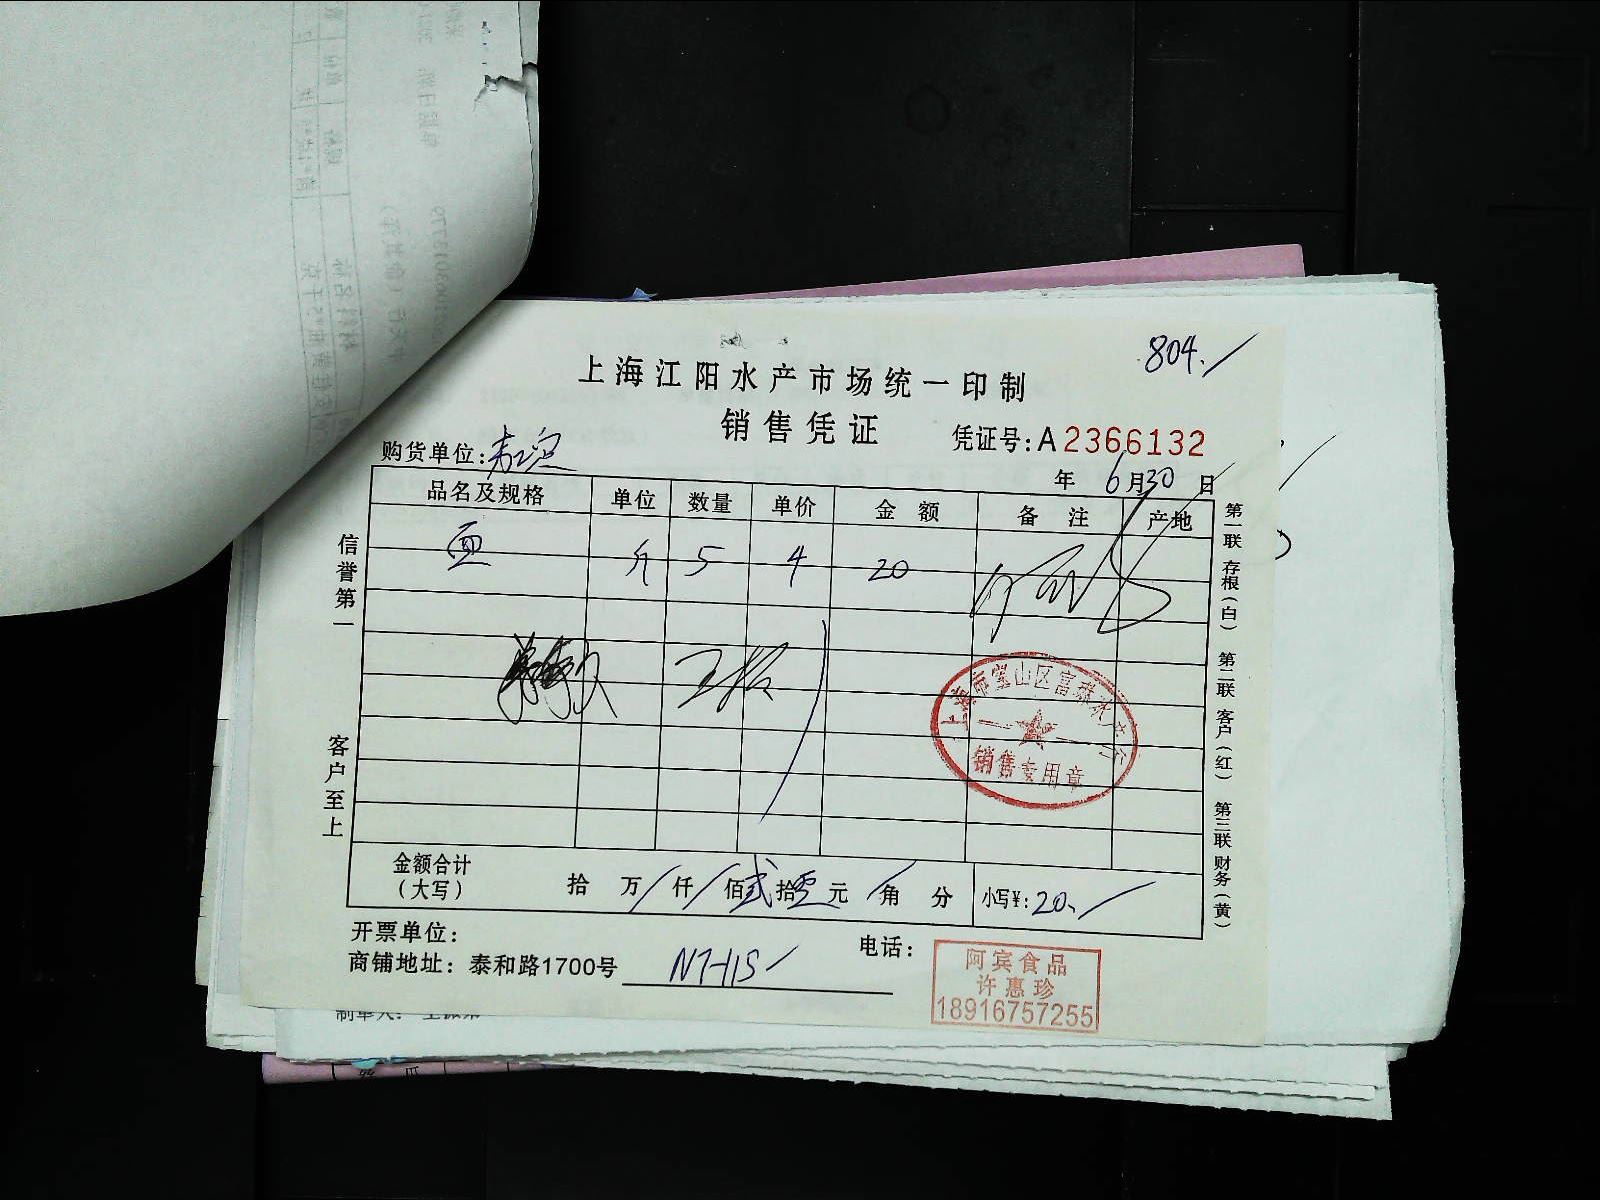 804.
上海江阳水产市场统一印制
销售凭证
凭证号:A2366132
购货单位:
年 6月30日
品名及规格 单位 数量 单价 金额 备注 产地
面 斤 5 4 20
信誉第一
客户至上
第一联 存根(白) 第二联 客户(红) 第三联 财务(黄)
上海市宝山区富珠水产行
销售专用章
金额合计
(大写)
拾 万 仟 佰贰拾零元 角 分
小写¥:20.
开票单位:
电话:
商铺地址:泰和路1700号 N7-115
阿宾食品
许惠珍
18916757255
制单人: